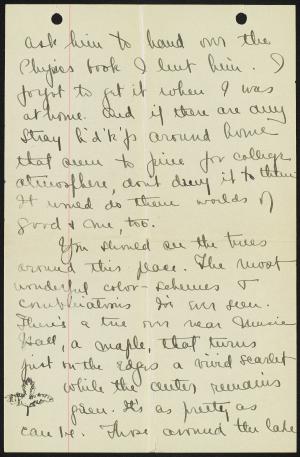 ask him to hand over the
Physics book I lent him. I
forgot to get it when I was
at home. And if there are any
stray h'd'k'fs around home
that seem to pine for college
atmosphere, don't deny it to them.
It would do them worlds of
good & me, too.
You should see the trees
around this place. The most
wonderful color-schemes &
combinations I've ever seen.
There's a tree over near Music
Hall, a maple, that turns
just on the edges a vivid scarlet
while the center remains
green. It's as pretty as
can be. Those around the lake